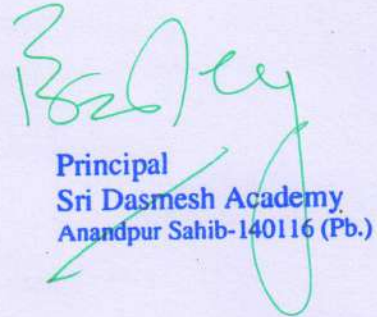 Principal
Sri Dasmesh Academy
Anandpur Sahib-140116 (Pb.)